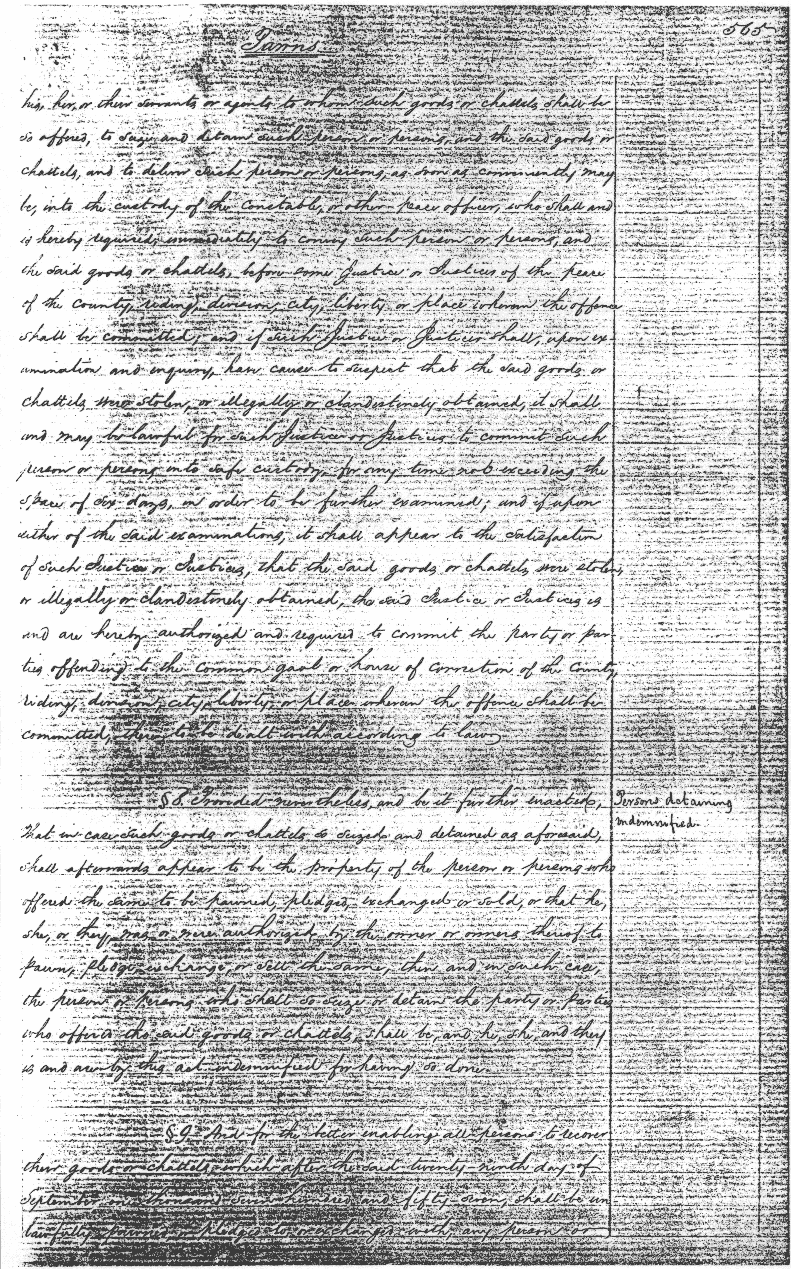 565
Pawns.
his, her, or their servants or agents to whom such goods or chattels shall be
so offered, to seize and detain such person or persons, and the said goods or
chattels, and to deliver such person or persons, as soon as conveniently may
be, into the custody of the constable, or other peace officer, who shall and
is hereby required, immediately to convey such person or persons, and
the said goods or chattels, before some Justice or Justices of the peace
of the county, riding, division, city, liberty or place wherein the offence
shall be committed; and if such Justice or Justices shall, upon ex-
amination and inquiry, have cause to suspect that the said goods or
chattels were stolen, or illegally or clandestinely obtained, it shall
and may be lawful for such Justice or Justices to commit such
person or persons into safe custody, for any time not exceeding the
space of six days, in order to be further examined; and if upon
either of the said examinations, it shall appear to the satisfaction
of such Justice or Justices, that the said goods or chattels were stolen,
or illegally or clandestinely obtained, the said Justice or Justices is
and are hereby authorized and required to commit the party or par-
ties offending to the common gaol or house of correction of the county,
riding, division, city, liberty, or place wherein the offence shall be
committed, there to be dealt with according to law.
§ 8. Provided nevertheless, and be it further enacted,
Persons detaining
indemnified.
That in case such goods or chattels so seized and detained as aforesaid,
shall afterwards appear to be the property of the person or persons who
offered the same to be pawned, pledged, exchanged or sold, or that he,
she, or they, was or were authorized, by the owner or owners thereof to
pawn, pledge, exchange, or sell the same, then and in such case,
the person or persons who shall so seize or detain the party or parties
who offered the said goods or chattels, shall be, and he, she, and they
is and are by this act indemnified for having so done.
§ 9. And for the better enabling all persons to recover
their goods or chattels, which after the said twenty-ninth day of
September one thousand seven hundred and fifty-seven, shall be un-
lawfully pawned or pledged to or exchanged with any person or